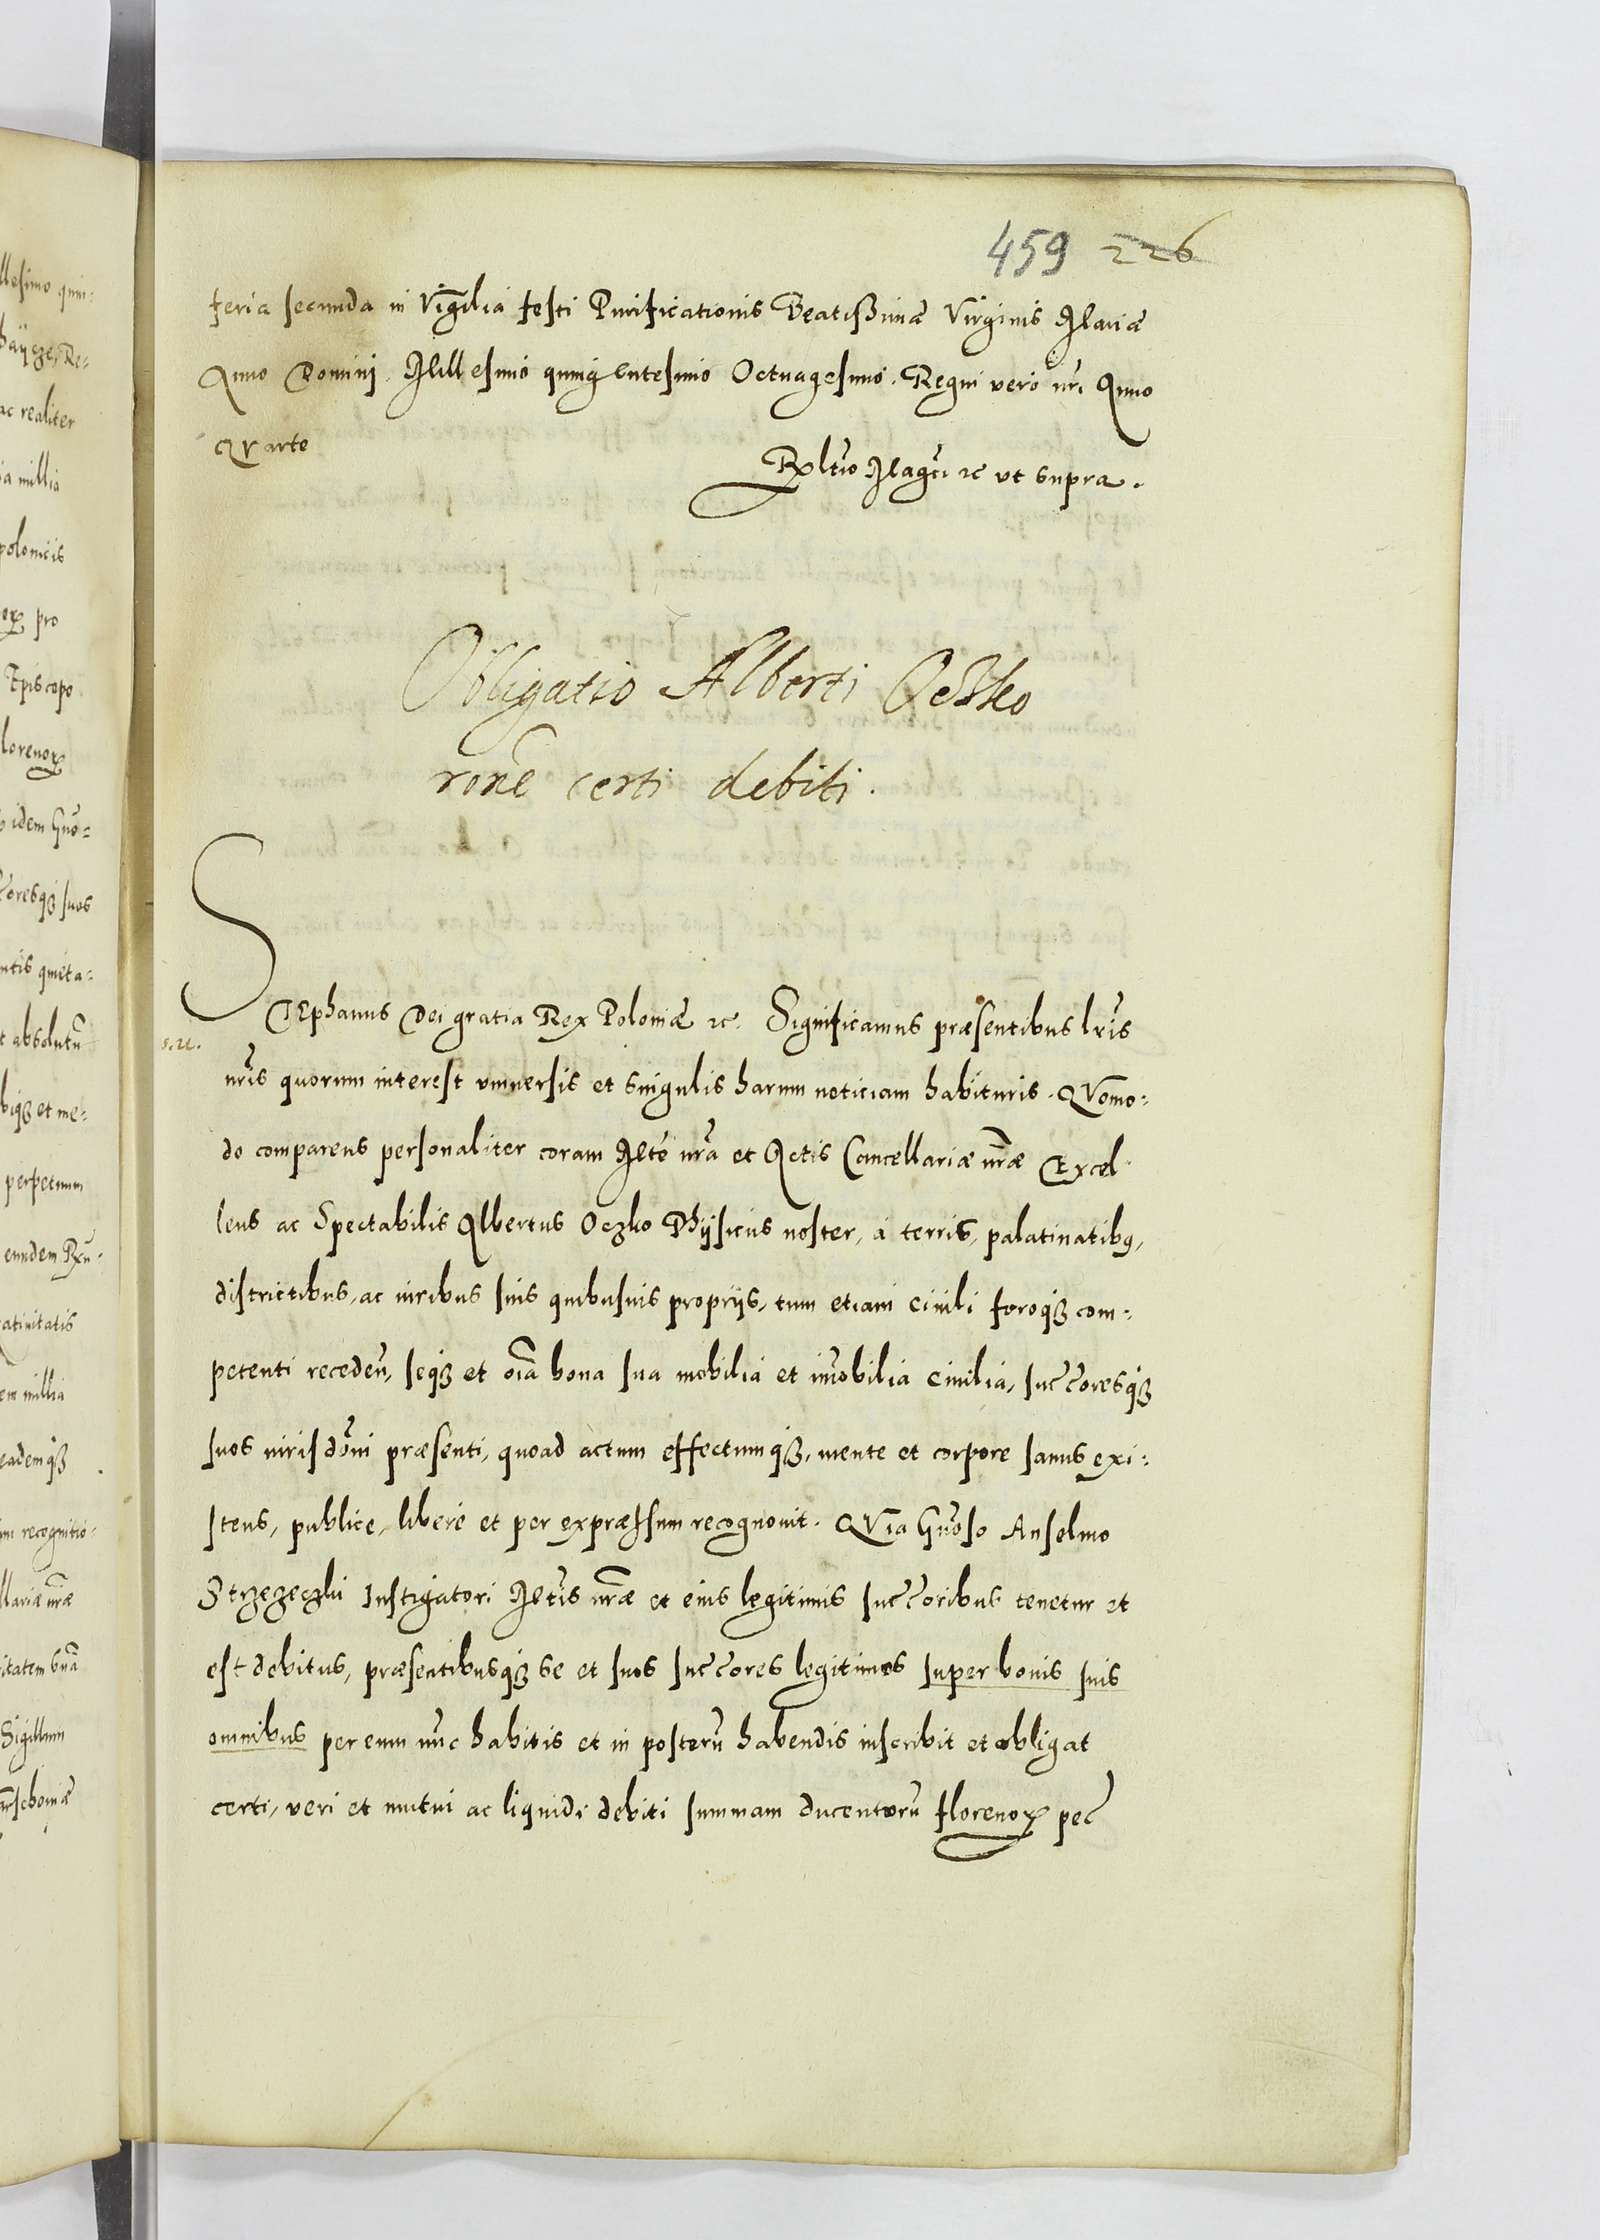 459 226
feria secunda in Vigilia festi Purificationis Beatissimæ Virginis Mariæ
Anno Domini Millesimo quingentesimo Octuagesimo. Regni vero nri Anno
Qvarto
Rltio Magci &c ut supra.
Obligatio Alberti Oczko
rone certi debiti.
STEphanus Dei gratia Rex Poloniæ &c. Significamus præsentibus lris
nris quorum interest vniuersis et singulis harum noticiam habituris. Qvomo:
do comparens personaliter coram Mte nra et Actis Cancellariæ nræ Excel
lens ac Spectabilis Albertus Oczko Phÿsicus noster, à terris, palatinatibq,
districtibus, ac iuribus suis quibusuis proprijs, tum etiam ciuili foroqȝ com:
petenti receden, seqȝ et oia bona sua mobilia et imobilia ciuilia, succoresqȝ
suos iurisdoni præsenti, quoad actum effectumqȝ, mente et corpore sanus exi:
stens, publice, libere et per expræssum recognouit. QVia Gnoso Anselmo
Strzezeczki Instigatori Mtis nræ et eius legitimis succoribus tenetur et
est debitus, præsentibusqȝ se et suos succores legitimos super bonis suis
omnibus per eum nuc habitis et in posteru habendis inscribit et obligat
certi, veri et mutui ac liquidi debiti summam ducentoru florenoꝝ pec